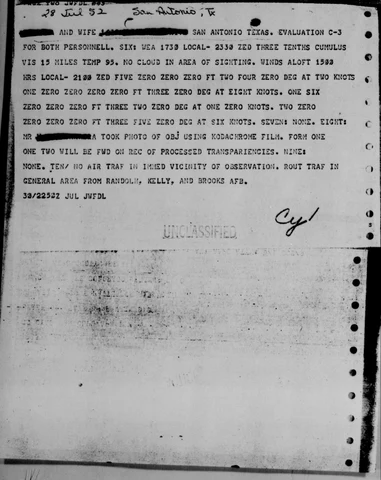 28 Jul 52 San Antonio, Tx
AND WIFE SAN ANTONIO TEXAS. EVALUATION C-3
FOR BOTH PERSONNELL. SIX: WEA 1730 LOCAL- 2330 ZED THREE TENTHS CUMULUS
VIS 15 MILES TEMP 95. NO CLOUD IN AREA OF SIGHTING. WINDS ALOFT 1500
HRS LOCAL- 2100 ZED FIVE ZERO ZERO ZERO FT TWO FOUR ZERO DEG AT TWO KNOTS
ONE ZERO ZERO ZERO ZERO FT THREE ZERO DEG AT EIGHT KNOTS. ONE SIX
ZERO ZERO ZERO FT THREE TWO ZERO DEG AT ONE ZERO KNOTS. TWO ZERO
ZERO ZERO ZERO FT THREE FIVE ZERO DEG AT SIX KNOTS. SEVEN: NONE. EIGHT:
MR A TOOK PHOTO OF OBJ USING KODACHROME FILM. FORM ONE
ONE TWO WILL BE FWD ON REC OF PROCESSED TRANSPARIENCIES. NINE:
NONE. TEN/ NO AIR TRAF IN IMMED VICINITY OF OBSERVATION. ROUT TRAF IN
GENERAL AREA FROM RANDOLPH, KELLY, AND BROOKS AFB.
30/2253Z JUL JWFDL
Cy 1
UNCLASSIFIED